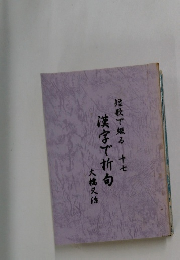 短歌で綴る 千七
漢字で折句
大橋又治